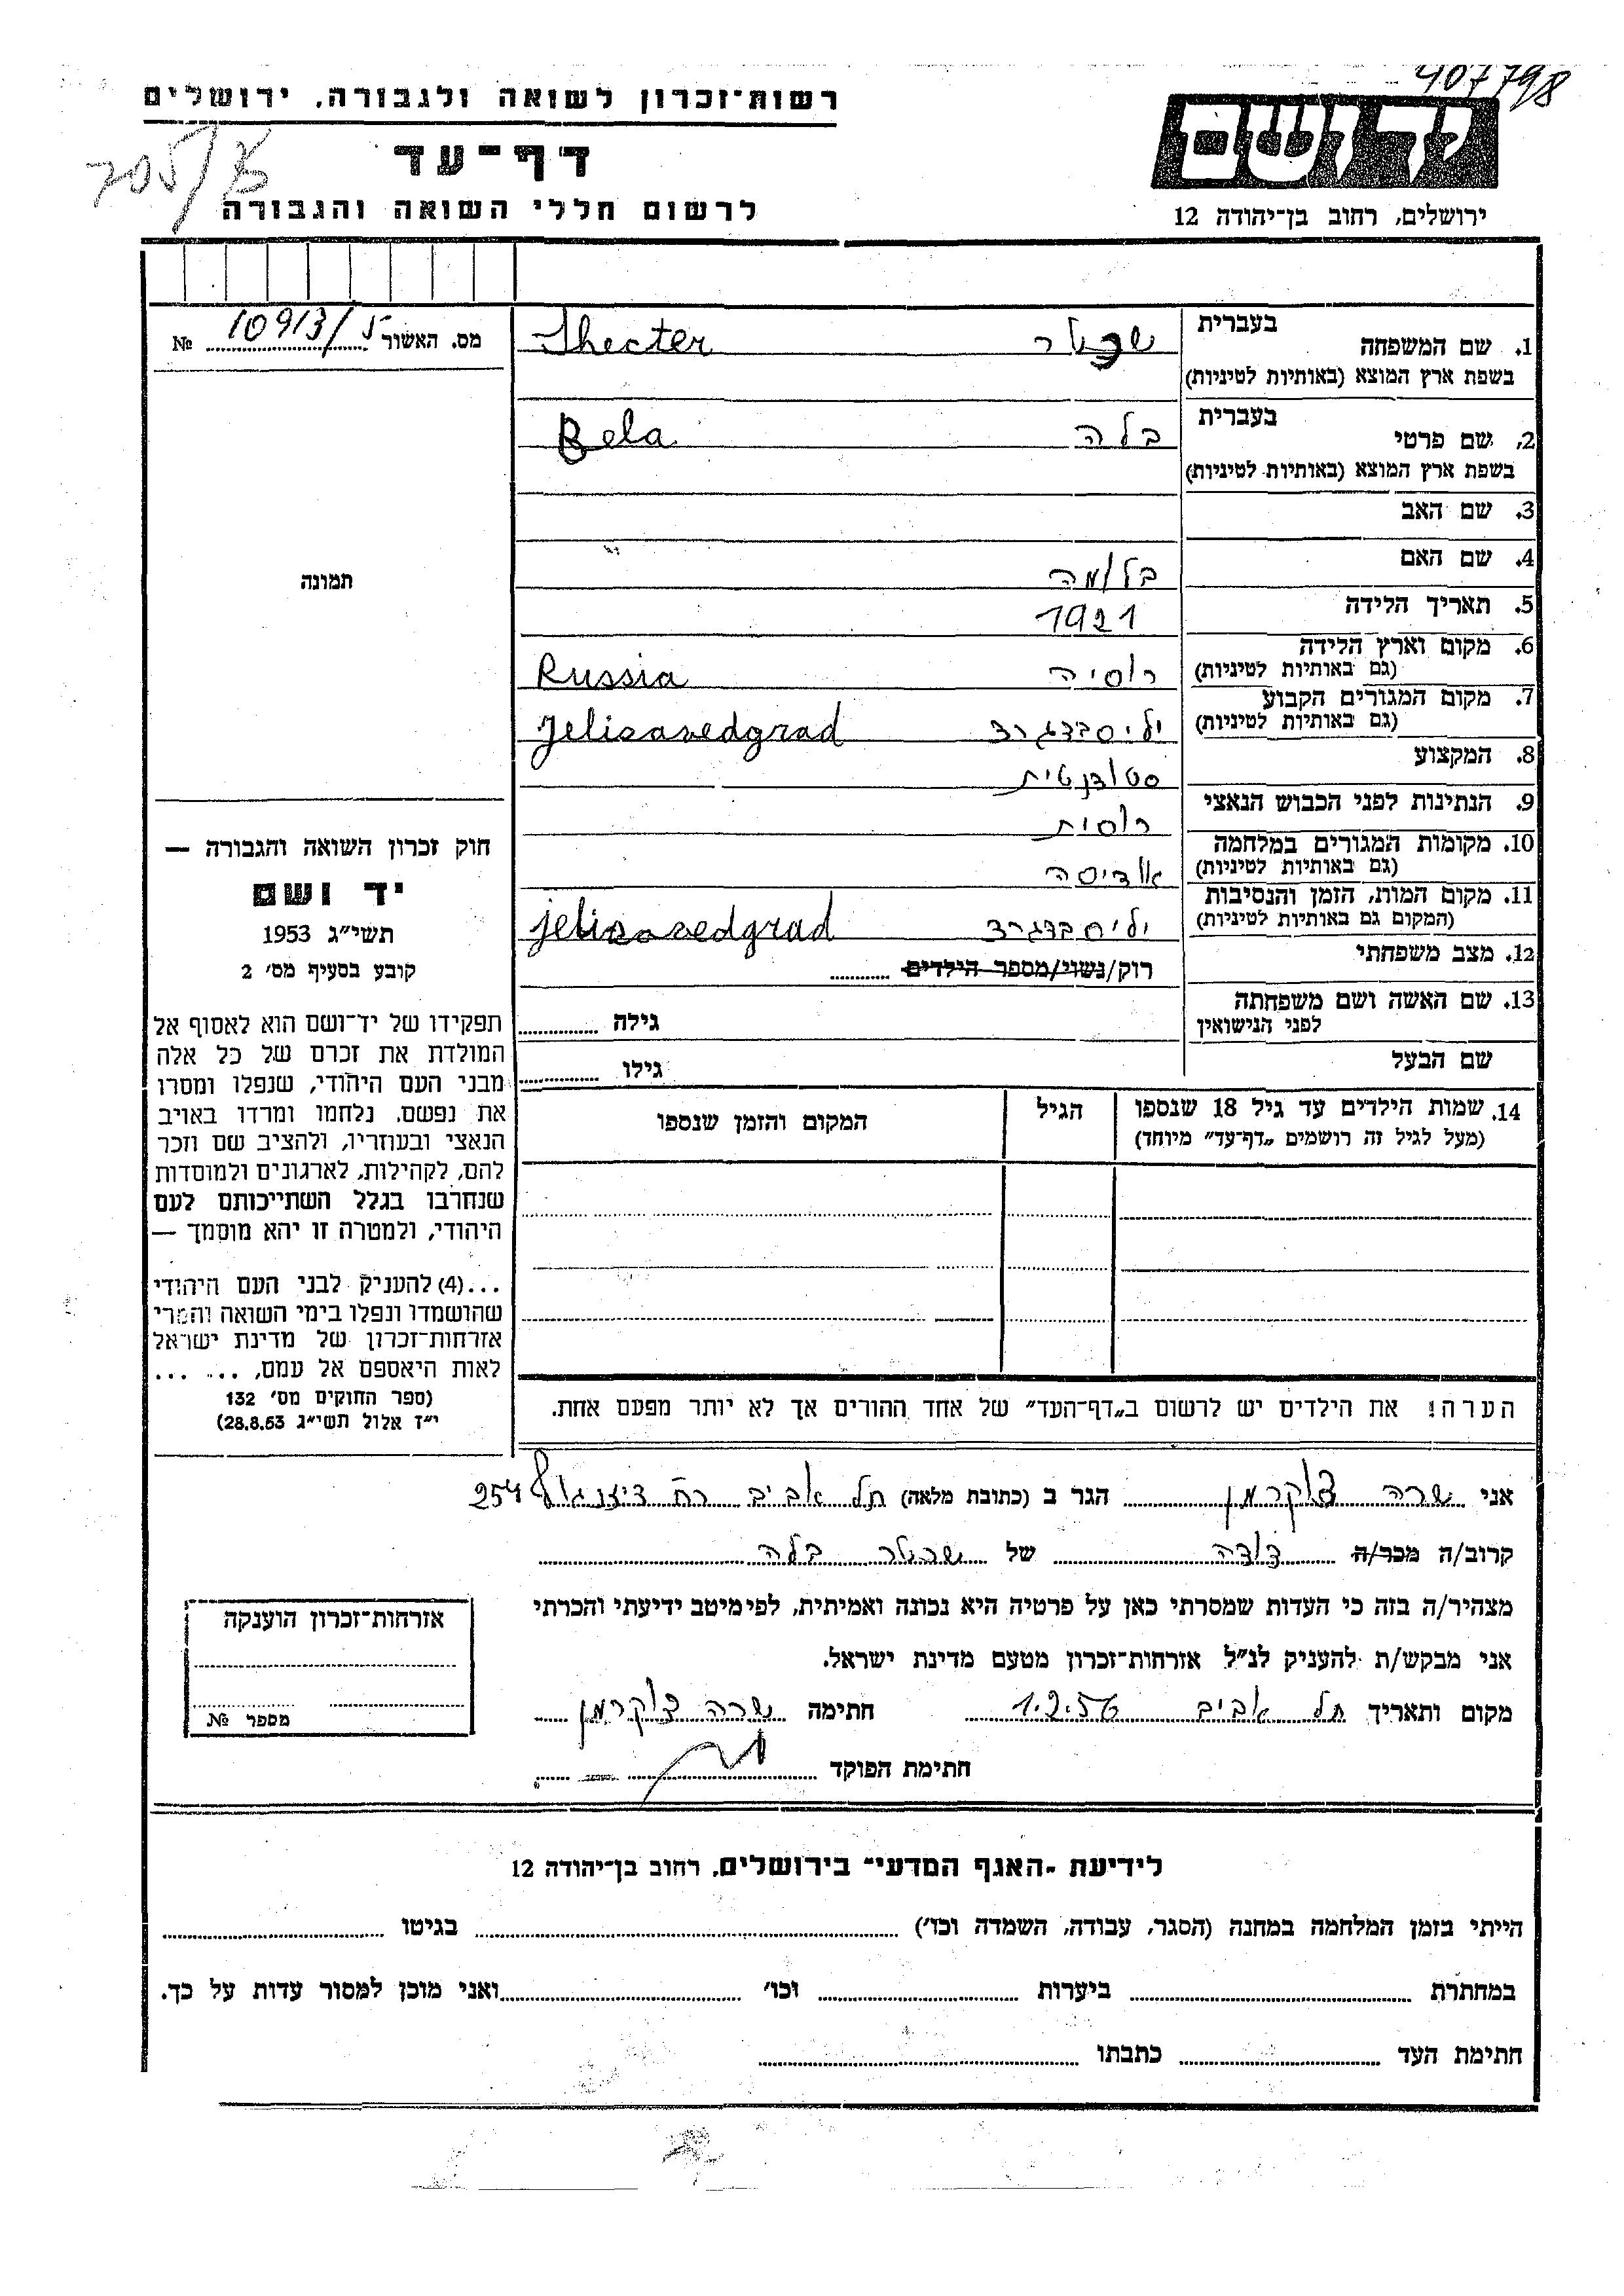 407798
רשות־זכרון לשואה ולגבורה, ירושלים
דף־עד
לרשום חללי השואה והגבורה
ידושם
ירושלים, רחוב בן־יהודה 12
מס. האשור 10913/5 №
תמונה
חוק זכרון השואה והגבורה —
יד ושם
תשי״ג 1953
קובע בסעיף מס׳ 2
תפקידו של יד־ושם הוא לאסוף אל
המולדת את זכרם של כל אלה
מבני העם היהודי, שנפלו ומסרו
את נפשם, נלחמו ומרדו באויב
הנאצי ובעוזריו, ולהציב שם וזכר
להם, לקהילות, לארגונים ולמוסדות
שנחרבו בגלל השתייכותם לעם
היהודי, ולמטרה זו יהא מוסמך —
...(4) להעניק לבני העם היהודי
שהושמדו ונפלו בימי השואה והמרי
אזרחות־זכרון של מדינת ישראל
לאות היאספם אל עמם, ... ...
(ספר החוקים מס׳ 132
י״ז אלול תשי״ג 28.8.53)
בעברית
1. שם המשפחה שכטר Shecter
בשפת ארץ המוצא (באותיות לטיניות)
בעברית
2. שם פרטי בלה Bela
בשפת ארץ המוצא (באותיות לטיניות)
3. שם האב
4. שם האם בלומה
5. תאריך הלידה 1921
6. מקום וארץ הלידה רוסיה Russia
(גם באותיות לטיניות)
7. מקום המגורים הקבוע יליסבדגרד Jelisavedgrad
(גם באותיות לטיניות)
8. המקצוע סטודנטית
9. הנתינות לפני הכבוש הנאצי רוסית
10. מקומות המגורים במלחמה אודיסה
(גם באותיות לטיניות)
11. מקום המות, הזמן והנסיבות יליסבדגרד jelisavedgrad
(המקום גם באותיות לטיניות)
12. מצב משפחתי רוק/נשוי/מספר הילדים
13. שם האשה ושם משפחתה גילה
לפני הנישואין
שם הבעל גילו
14. שמות הילדים עד גיל 18 שנספו הגיל המקום והזמן שנספו
(מעל לגיל זה רושמים „דף־עד״ מיוחד)
הערה! את הילדים יש לרשום ב„דף־העד״ של אחד ההורים אך לא יותר מפעם אחת.
אני שרה צוקרמן הגר ב (כתובת מלאה) תל אביב רח דיזנגוף 254
קרוב/ה מכר/ה דודה של שכטר בלה
מצהיר/ה בזה כי העדות שמסרתי כאן על פרטיה היא נכונה ואמיתית, לפי מיטב ידיעתי והכרתי
אני מבקש/ת להעניק לנ״ל אזרחות־זכרון מטעם מדינת ישראל.
מקום ותאריך תל אביב 1.2.56 חתימה שרה צוקרמן
חתימת הפוקד
אזרחות־זכרון הוענקה
מספר №
לידיעת ״האגף המדעי״ בירושלים, רחוב בן־יהודה 12
הייתי בזמן המלחמה במחנה (הסגר, עבודה, השמדה וכו׳) בגיטו
במחתרת ביערות וכו׳ ואני מוכן למסור עדות על כך.
חתימת העד כתבתו